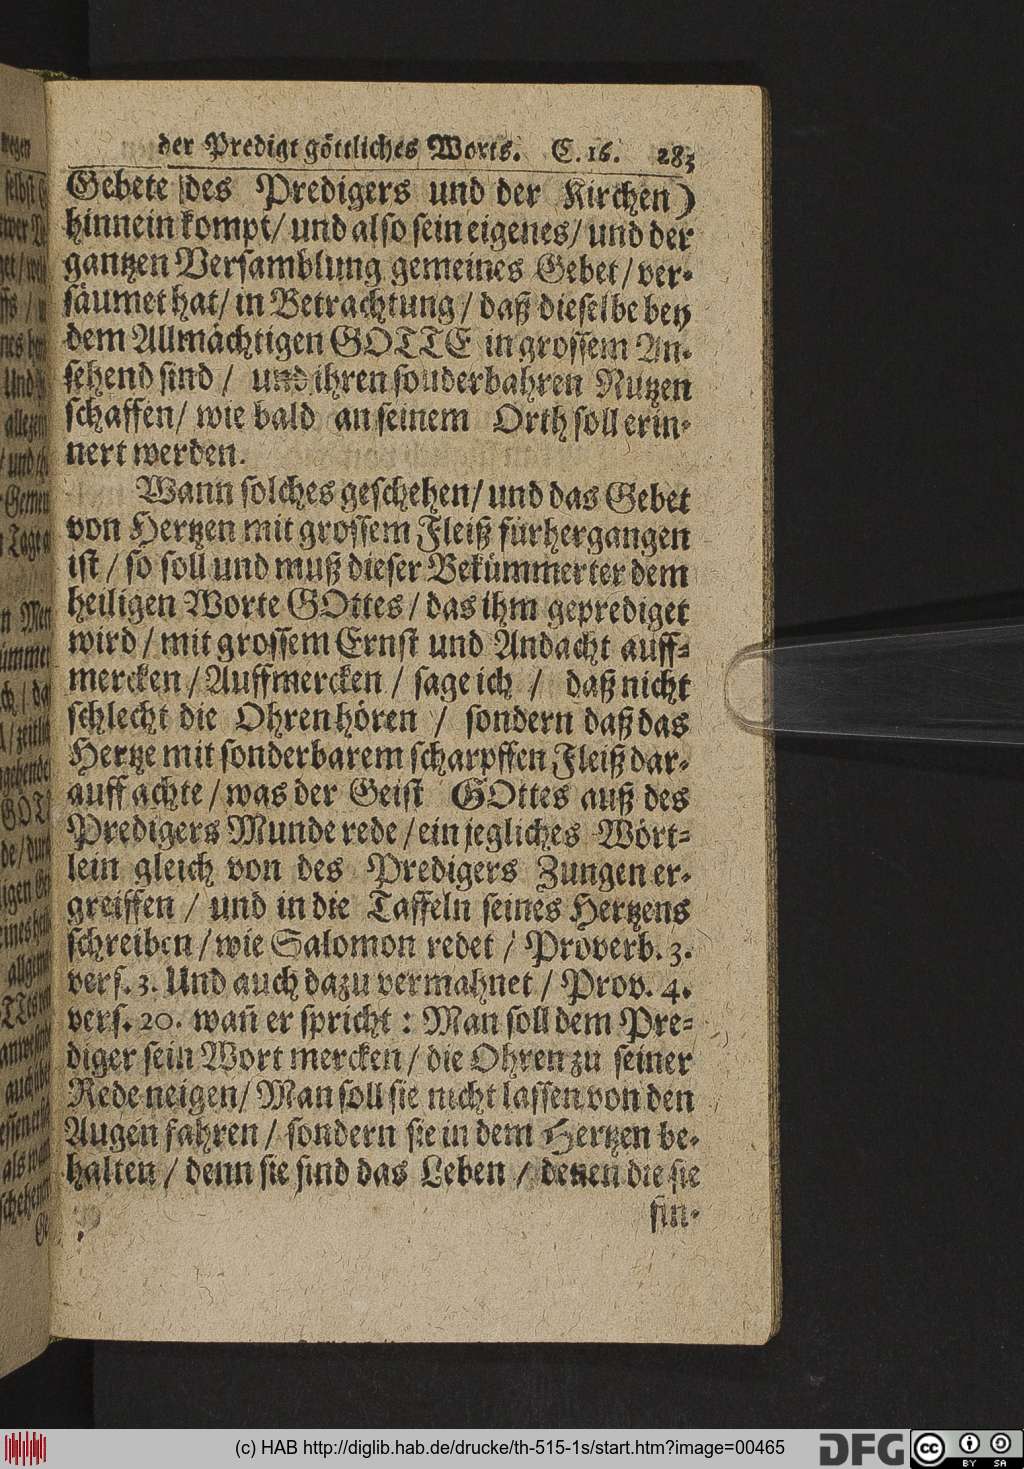 der Predigt göttliches Worts. C. 16. 283
Gebete (des Predigers und der Kirchen)
hinnein kompt/ und also sein eigenes/ und der
gantzen Versamblung gemeines Gebet/ ver-
säumet hat/ in Betrachtung/ daß dieselbe bey
dem Allmächtigen GOTTE in grossem An-
sehend sind/ und ihren sonderbahren Nutzen
schaffen/ wie bald an seinem Orth soll erin-
nert werden.
Wann solches geschehen/ und das Gebet
von Hertzen mit grossem Fleiß fürhergangen
ist/ so soll und muß dieser Bekümmerter dem
heiligen Worte GOttes/ das ihm geprediget
wird/ mit grossem Ernst und Andacht auff-
mercken/ Auffmercken/ sage ich/ daß nicht
schlecht die Ohren hören/ sondern daß das
Hertze mit sonderbarem scharpffen Fleiß dar-
auff achte/ was der Geist GOttes auß des
Predigers Munde rede/ ein jegliches Wört-
lein gleich von des Predigers Zungen er-
greiffen/ und in die Taffeln seines Hertzens
schreiben/ wie Salomon redet/ Proverb. 3.
vers. 3. Und auch dazu vermahnet/ Prov. 4.
vers. 20. wañ er spricht: Man soll dem Pre-
diger sein Wort mercken/ die Ohren zu seiner
Rede neigen/ Man soll sie nicht lassen von den
Augen fahren/ sondern sie in dem Hertzen be-
halten/ denn sie sind das Leben/ denen die sie
fin-
(c) HAB http://diglib.hab.de/drucke/th-515-1s/start.htm?image=00465
DFG
cc BY SA